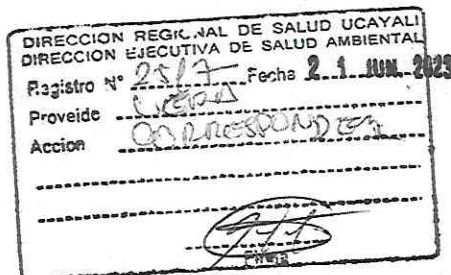 DIRECCION REGIONAL DE SALUD UCAYALI
DIRECCION EJECUTIVA DE SALUD AMBIENTAL
Registro N° 2517 Fecha 21 JUN. 2023
Proveide
Accion CORRESPONDIEN
Firma